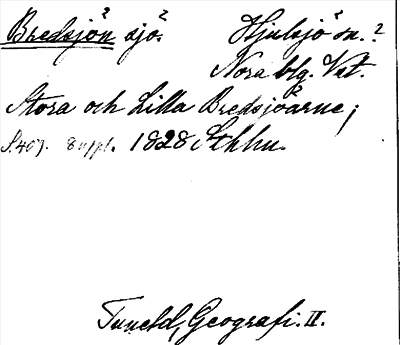 Bredsjön sjö. Hjulsjö sn.?
Nora blg. Vst.
Stora och Lilla Bredsjöarne;
S.407. 8 uppl. 1828 Sthlm.
Tuneld, Geografi. II.